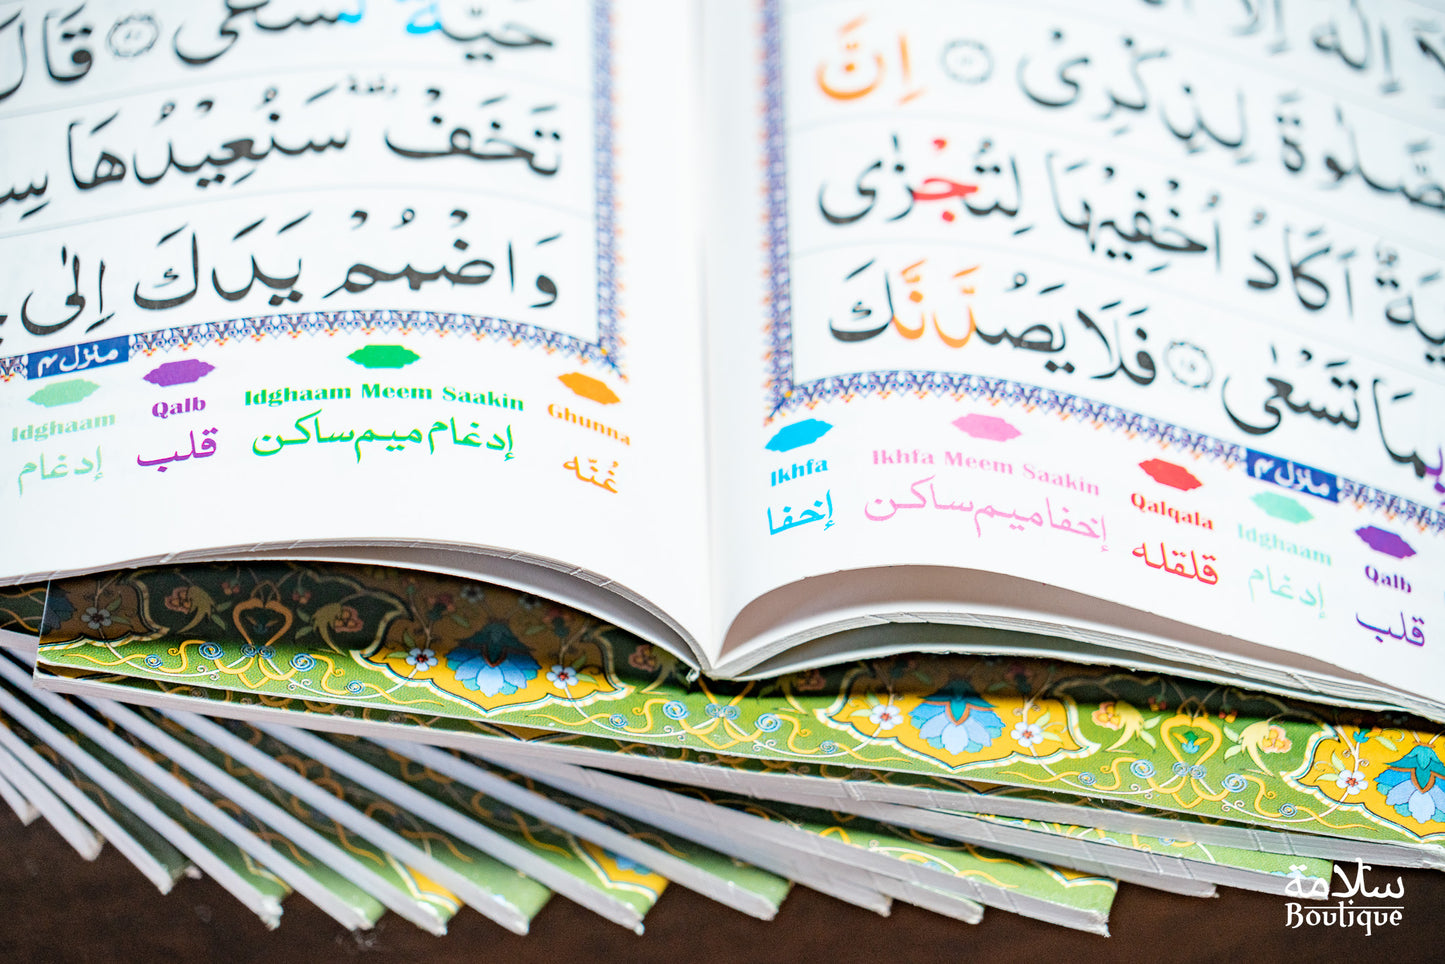 اِلٰهَ اِلَّا
صَّلٰوةَ لِذِكْرِىْ ۝ اِنَّ
يَةٌ اَكَادُ اُخْفِيْهَا لِتُجْزٰى
بِمَا تَسْعٰى ۝ فَلَا يَصُدَّنَّكَ
منزل ۴
Ikhfa
إخفا
Ikhfa Meem Saakin
إخفا ميم ساكن
Qalqala
قلقله
Idghaam
إدغام
Qalb
قلب
حَيَّةٌ تَسْعٰى ۝ قَالَ
تَخَفْ سَنُعِيْدُهَا
وَاضْمُمْ يَدَكَ اِلٰى
منزل ۴
Idghaam
إدغام
Qalb
قلب
Idghaam Meem Saakin
إدغام ميم ساكن
Ghunna
غُنّه
سلامة
Boutique